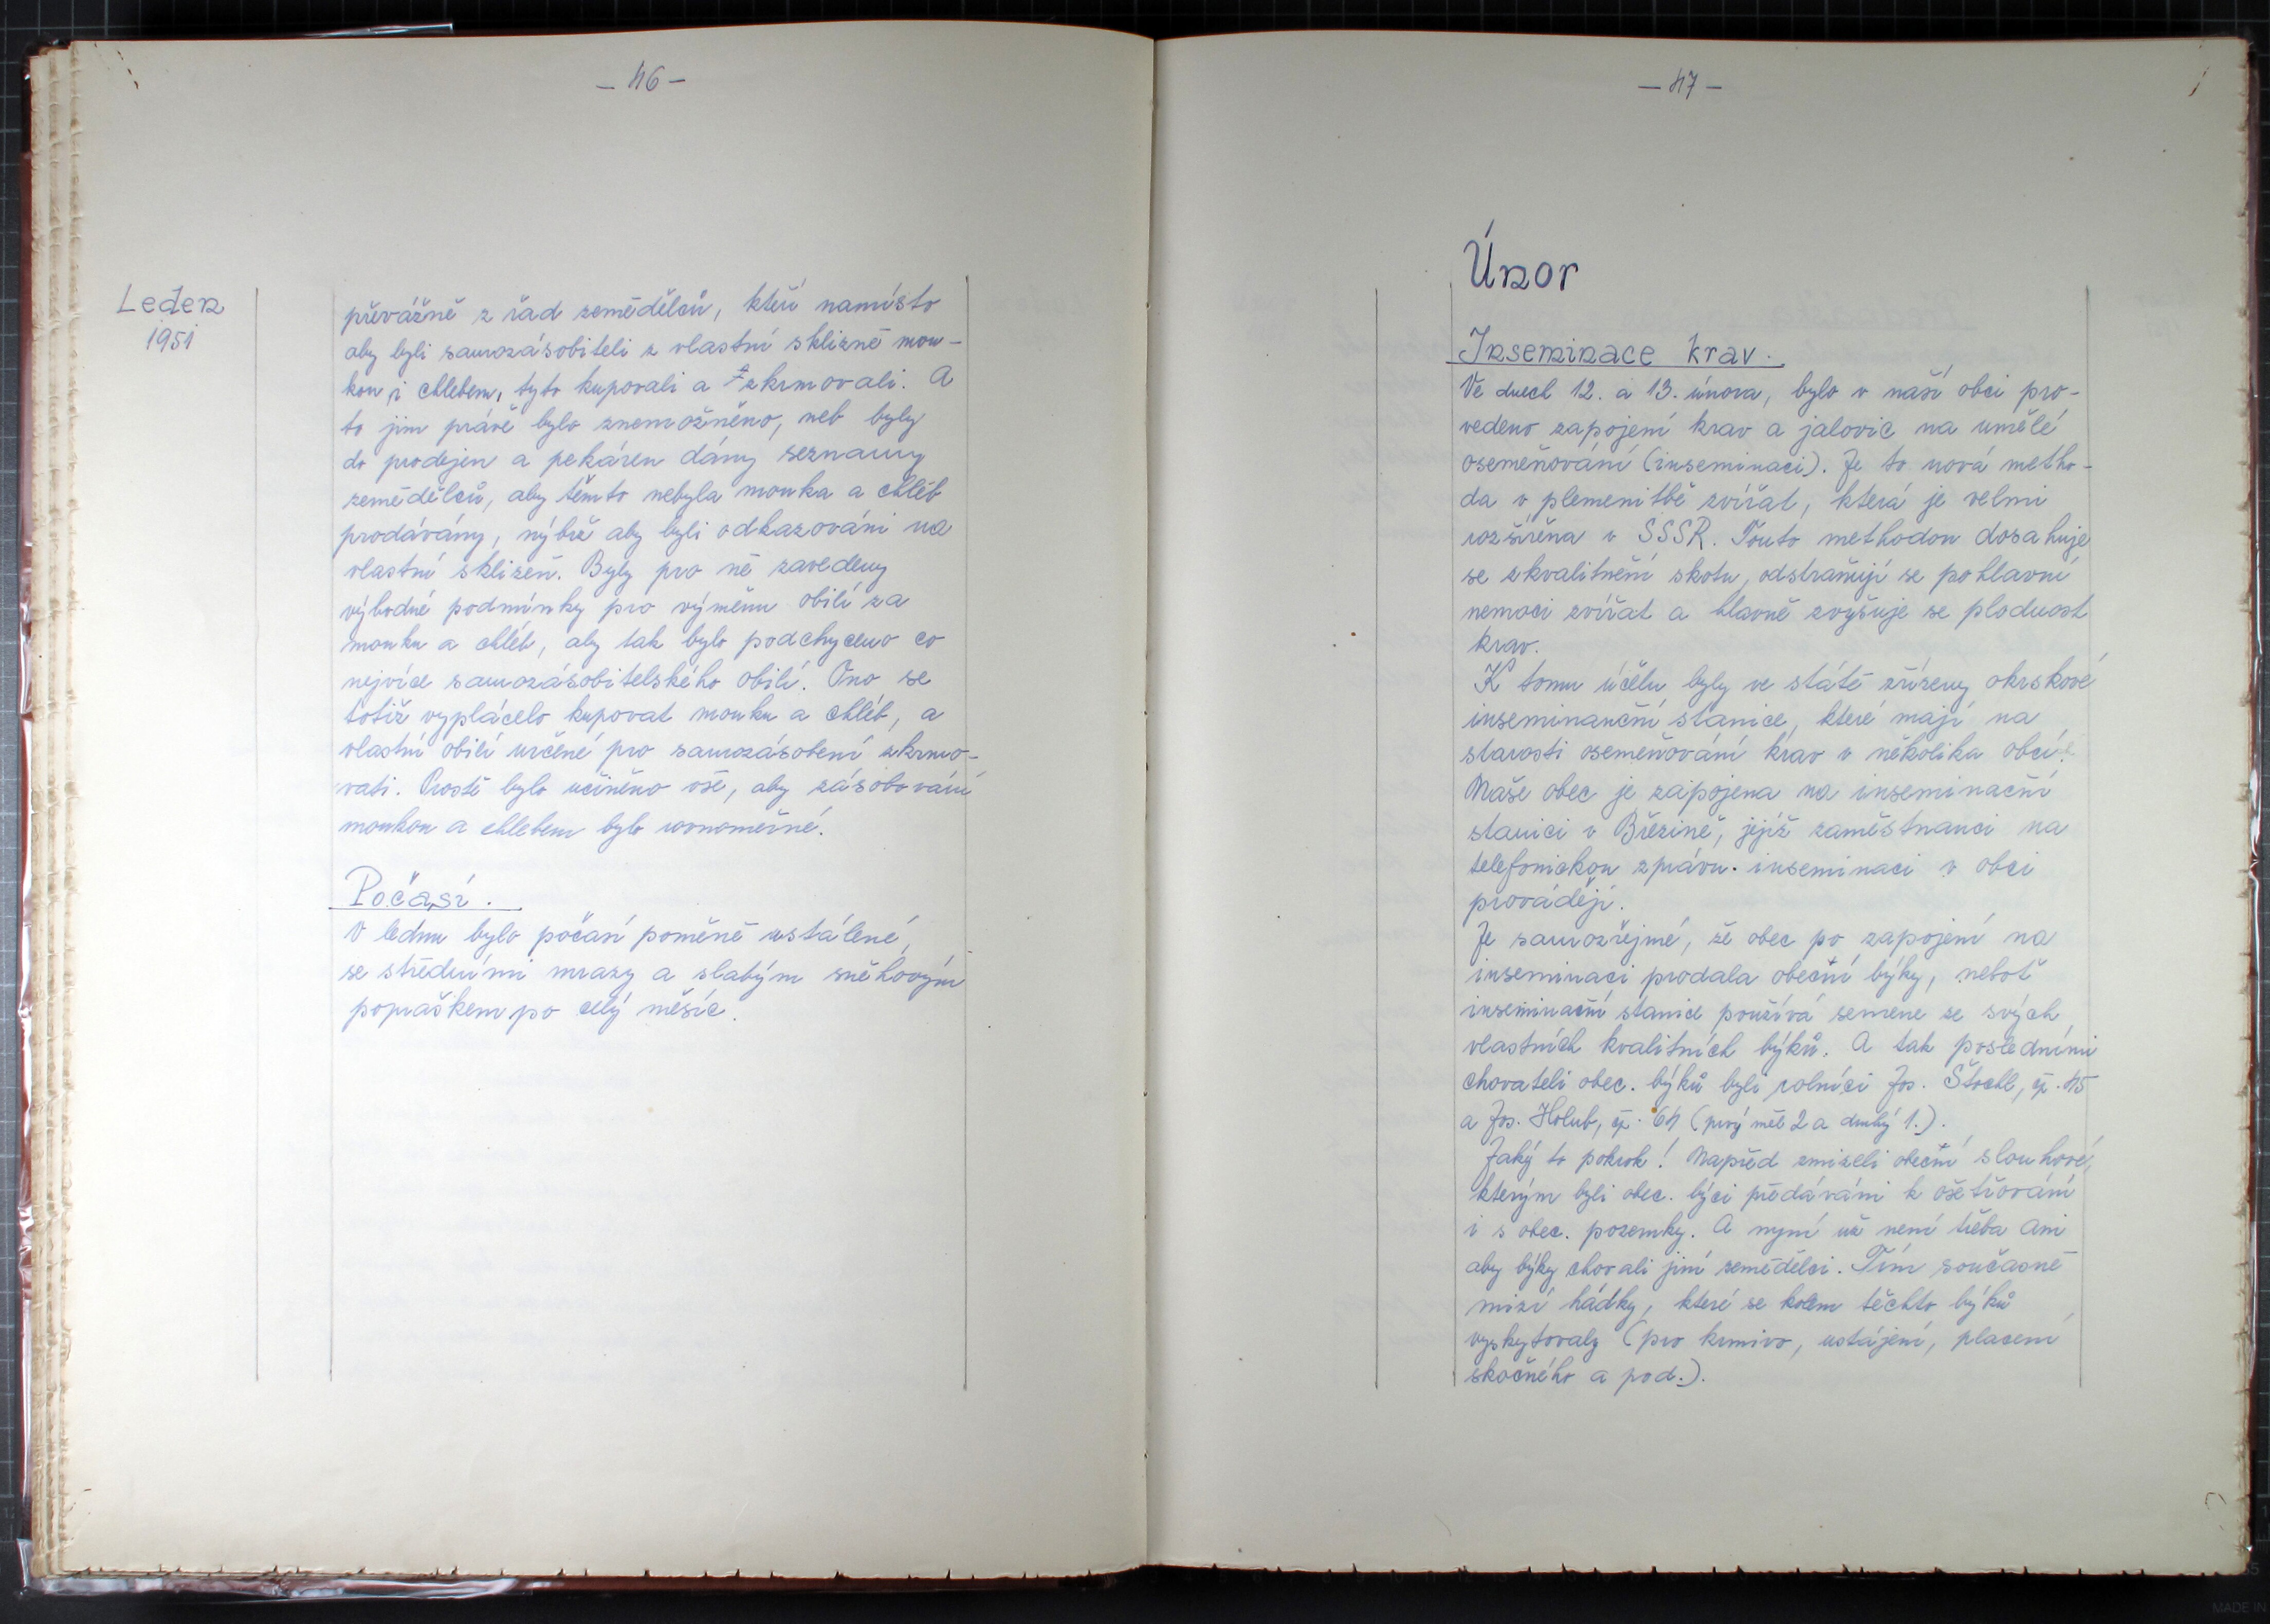 – 46 –
Leden
1951
převážně z řad zemědělců, kteří namísto
aby byli samozásobiteli z vlastní sklizně mou-
kou i chlebem, tyto kupovali a zkrmovali. A
to jim právě bylo znemožněno, neb byly
do prodejen a pekáren dány seznamy
zemědělců, aby těmto nebyla mouka a chléb
prodávány, nýbrž aby byli odkazováni na
vlastní sklizeň. Byly pro ně zavedeny
výhodné podmínky pro výměnu obilí za
mouku a chléb, aby tak bylo podchyceno co
nejvíce samozásobitelského obilí. Ono se
totiž vyplácelo kupovat mouku a chléb, a
vlastní obilí určené pro samozásobení zkrmo-
vati. Prostě bylo učiněno vše, aby zásobování
moukou a chlebem bylo rovnoměrné.
Počasí.
V lednu bylo počasí poměně ustálené,
se středními mrazy a slabým sněhovým
popraškem po celý měsíc.
– 47 –
Únor
Inseminace krav.
Ve dnech 12. a 13. února, bylo v naší obci pro-
vedeno zapojení krav a jalovic na umělé
osemeňování (inseminaci). Je to nová metho-
da v plemenitbě zvířat, která je velmi
rozšířena v SSSR. Touto methodou dosahuje
se zkvalitnění skotu, odstraňují se pohlavní
nemoci zvířat a hlavně zvyšuje se plodnost
krav.
K tomu účelu byly ve státě zřízeny okrskové
inseminanční stanice, které mají na
starosti osemeňování krav v několika obcí.
Naše obec je zapojena na inseminační
stanici v Březině, jejíž zaměstnanci na
telefonickou zprávu inseminaci v obci
provádějí.
Je samozřejmé, že obec po zapojení na
inseminaci prodala obecní býky, neboť
inseminační stanice používá semene ze svých
vlastních kvalitních býků. A tak posledními
chovateli obec. býků byli rolníci Jos. Štochl, čp. 45
a Jos. Holub, čp. 64 (prvý měl 2 a druhý 1.).
Jaký to pokrok! Napřed zmizeli obecní slouhové,
kterým byli obec. býci předáváni k ošetřování
i s obec. pozemky. A nyní už není třeba ani
aby býky chovali jiní zemědělci. Tím současně
mizí hádky, které se kolem těchto býků
vyskytovaly (pro krmivo, ustájení, placení
skočného a pod.).
MADE IN